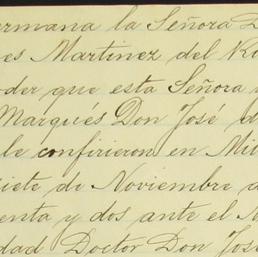 ermana la Señora D
es Martinez del Ri
der que esta Señora
Marqués Don José d
le confirieron en Mil
siete de Noviembre d
enta y dos ante el N
dad Doctor Don José